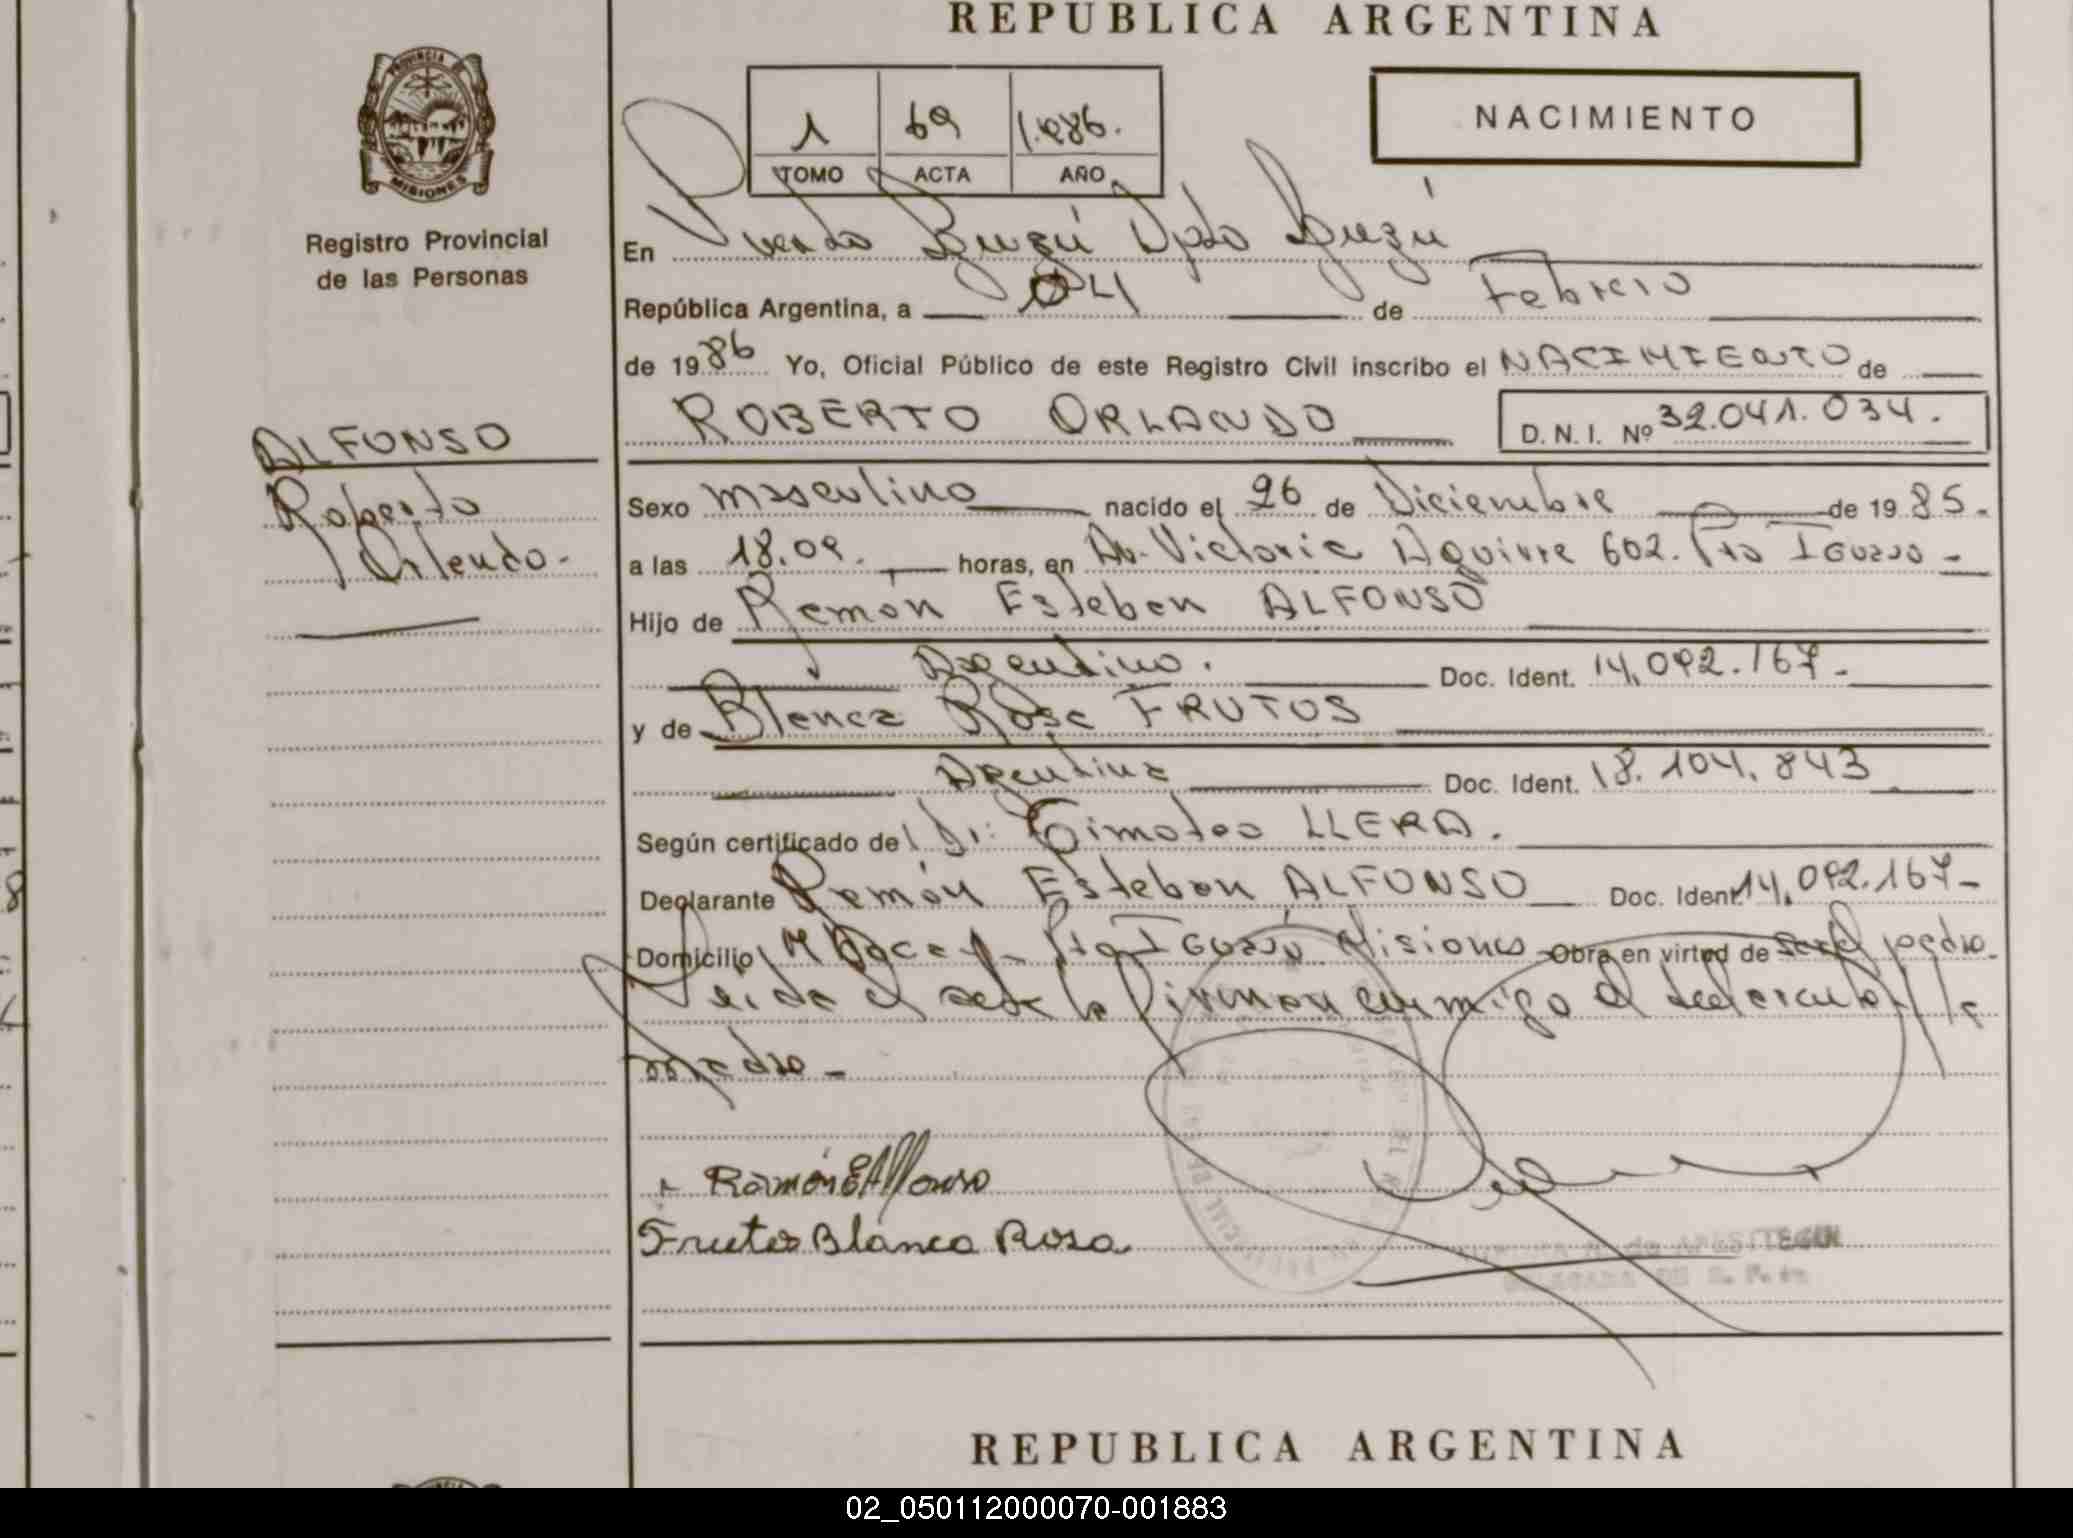 REPUBLICA ARGENTINA
PROVINCIA DE
MISIONES
Registro Provincial
de las Personas
1 69 1.986.
TOMO ACTA AÑO
NACIMIENTO
En Puerto Iguazú Dpto Iguazú
República Argentina, a 04 de Febrero
de 1986 Yo, Oficial Público de este Registro Civil inscribo el NACIMIENTO de
ROBERTO ORLANDO D. N. I. Nº 32.041.034.
ALFONSO
Roberto
Orlando-
Sexo masculino nacido el 26 de Diciembre de 1985.
a las 18.09. horas, en Av. Victoria Aguirre 602. Pto Iguazú-
Hijo de Ramón Esteban ALFONSO
Argentino. Doc. Ident. 14.092.167-
y de Blanca Rosa FRUTOS
Argentina Doc. Ident. 18.104.843
Según certificado de Dr: Timoteo LLERA.
Declarante Ramón Esteban ALFONSO Doc. Ident. 14.092.167-
Domicilio Pto Iguazú Misiones Obra en virtud de ser el padre.
Leida el acta la firman conmigo el declarante y la
madre-
Ramón E Alfonso
Frutos Blanca Rosa
REPUBLICA ARGENTINA
02_050112000070-001883